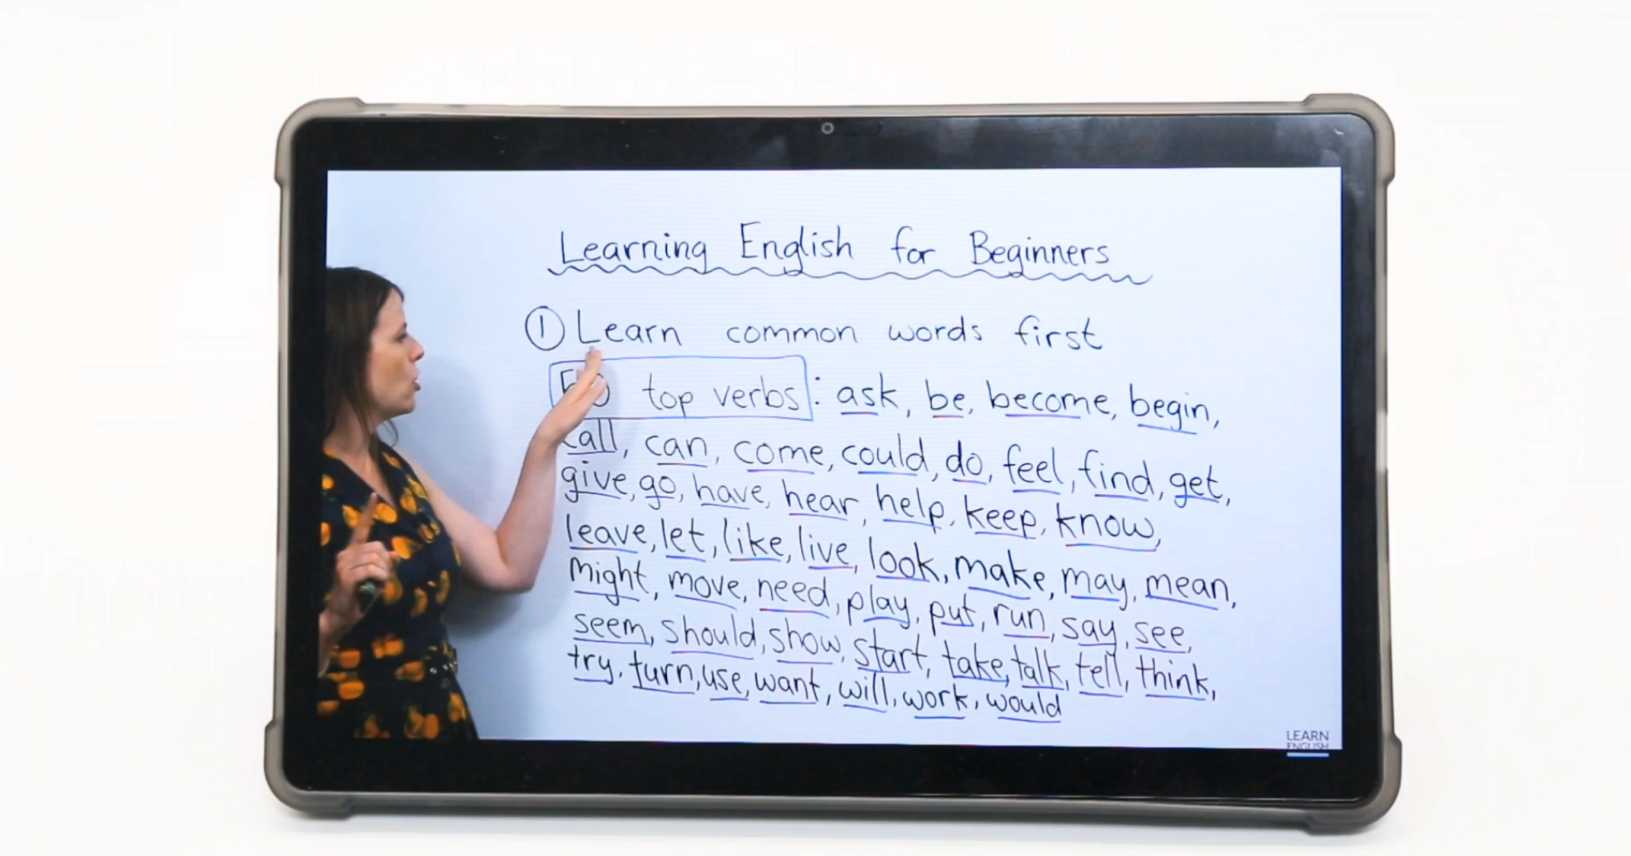 Learning English for Beginners
① Learn common words first
top verbs: ask, be, become, begin,
call, can, come, could, do, feel, find, get,
give, go, have, hear, help, keep, know,
leave, let, like, live, look, make, may, mean,
might, move, need, play, put, run, say, see,
seem, should, show, start, take, talk, tell, think,
try, turn, use, want, will, work, would
LEARN
ENGLISH